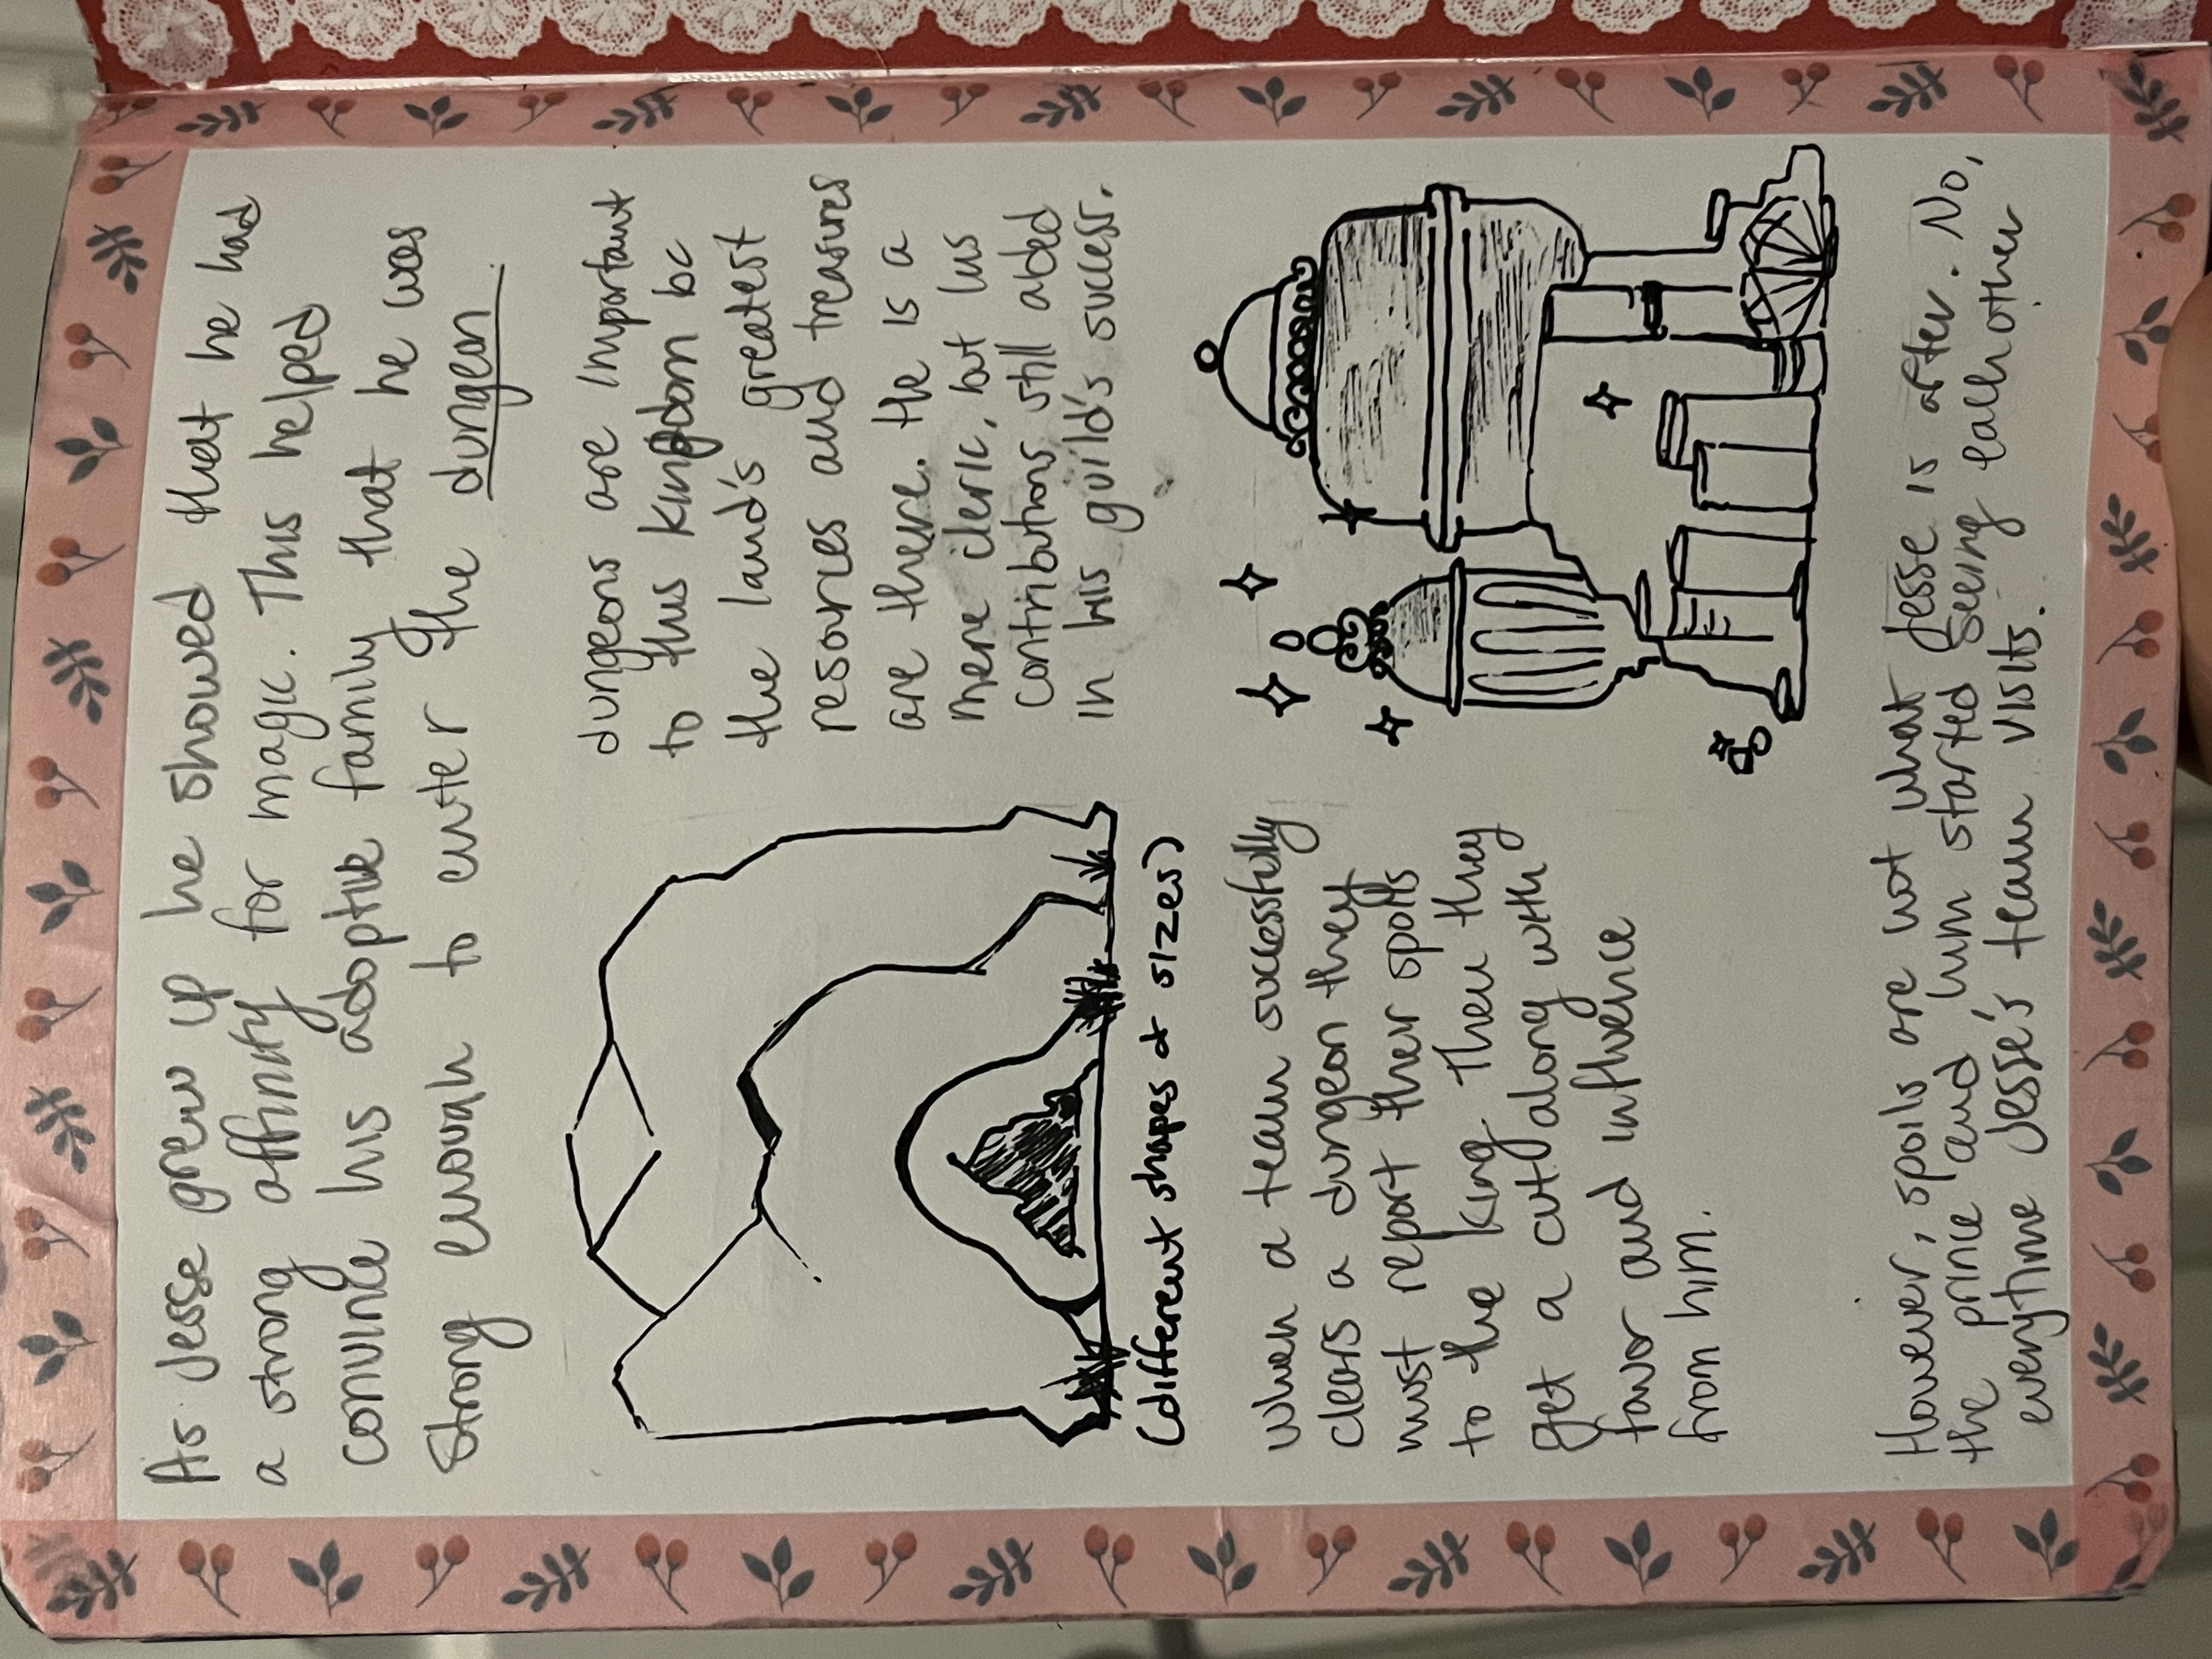 As Jesse grew up he showed that he had
a strong affinity for magic. This helped
convince his adoptive family that he was
strong enough to enter the dungeon
dungeons are important
to this kingdom bc
the land's greatest
resorces and treasures
are there. He is a
mere cleric, but his
contributions still aided
in his guild's success.
(different shapes & sizes)
When a team successfully
clears a dungeon they
must report their spoils
to the king. Then they
get a cut along with
favor and influence
from him.
However, spoils are not what Jesse is after. No,
the prince and him started seeing each other
everytime Jesse's team visits.